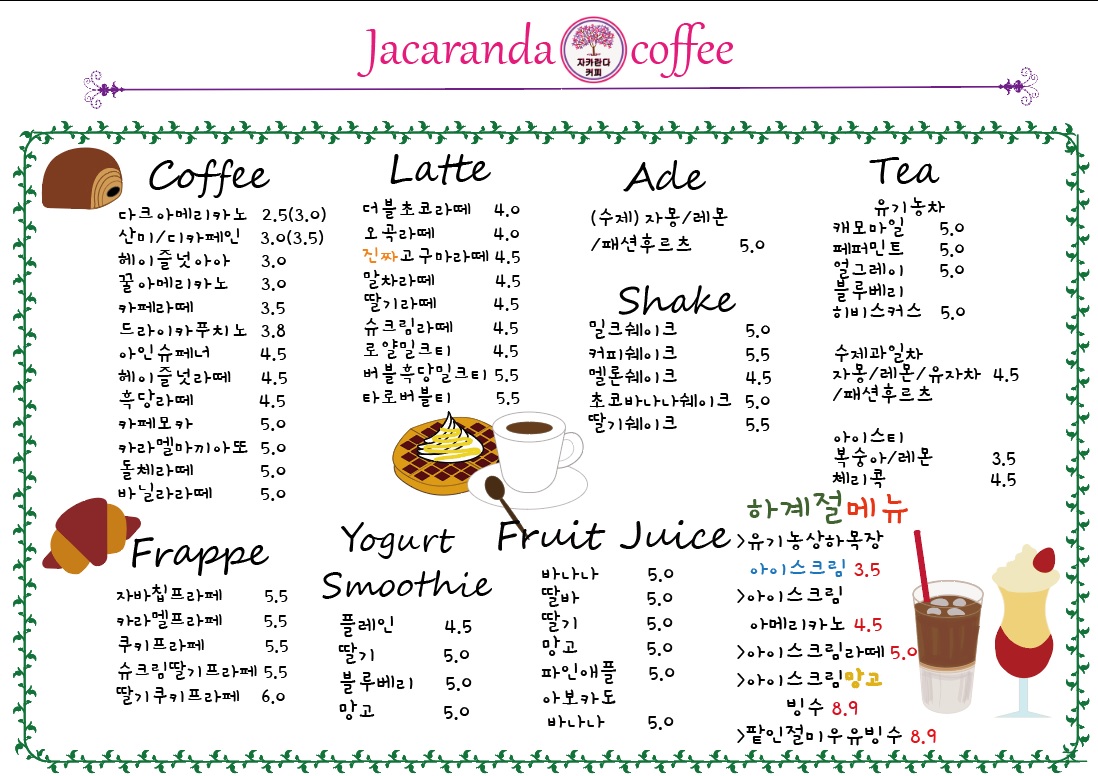 Jacaranda coffee
자카란다
커피
Coffee
다크아메리카노 2.5(3.0)
산미/디카페인 3.0(3.5)
헤이즐넛아아 3.0
꿀아메리카노 3.0
카페라떼 3.5
드라이카푸치노 3.8
아인슈페너 4.5
헤이즐넛라떼 4.5
흑당라떼 4.5
카페모카 5.0
카라멜마끼아또 5.0
돌체라떼 5.0
바닐라라떼 5.0
Latte
더블초코라떼 4.0
오곡라떼 4.0
진짜고구마라떼 4.5
말차라떼 4.5
딸기라떼 4.5
슈크림라떼 4.5
로얄밀크티 4.5
버블흑당밀크티 5.5
타로버블티 5.5
Ade
(수제) 자몽/레몬
/패션후르츠 5.0
Shake
밀크쉐이크 5.0
커피쉐이크 5.5
멜론쉐이크 4.5
초코바나나쉐이크 5.0
딸기쉐이크 5.5
Tea
유기농차
캐모마일 5.0
페퍼민트 5.0
얼그레이 5.0
블루베리
히비스커스 5.0
수제과일차
자몽/레몬/유자차 4.5
/패션후르츠
아이스티
복숭아/레몬 3.5
체리콕 4.5
Frappe
자바칩프라페 5.5
카라멜프라페 5.5
쿠키프라페 5.5
슈크림딸기프라페 5.5
딸기쿠키프라페 6.0
Yogurt
Smoothie
플레인 4.5
딸기 5.0
블루베리 5.0
망고 5.0
Fruit Juice
바나나 5.0
딸바 5.0
딸기 5.0
망고 5.0
파인애플 5.0
아보카도
바나나 5.0
하계절메뉴
>유기농상하목장
아이스크림 3.5
>아이스크림
아메리카노 4.5
>아이스크림라떼 5.0
>아이스크림망고
빙수 8.9
>팥인절미우유빙수 8.9